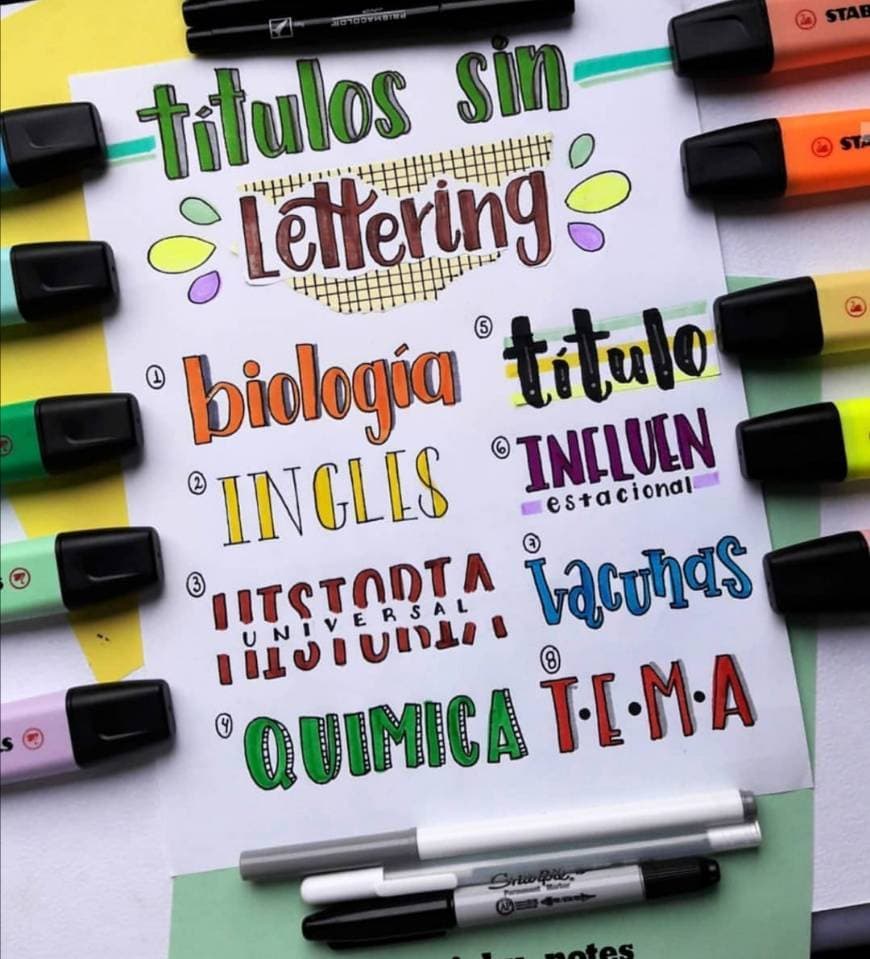 PRISMACOLOR
STAB
STA
títulos sin
Lettering
1 biología
2 INGLES
3 HISTORIA
UNIVERSAL
4 QUIMICA
5 título
6 INFLUEN
estacional
7 vacunas
8 T•E•M•A
S
Sharpie
Permanent Marker
AP
notes